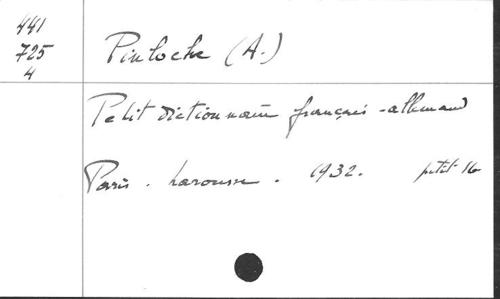 441
725
4
Pinloche (A.)
Petit dictionnaire français-allemand
Paris. Larousse. 1932. petit 16